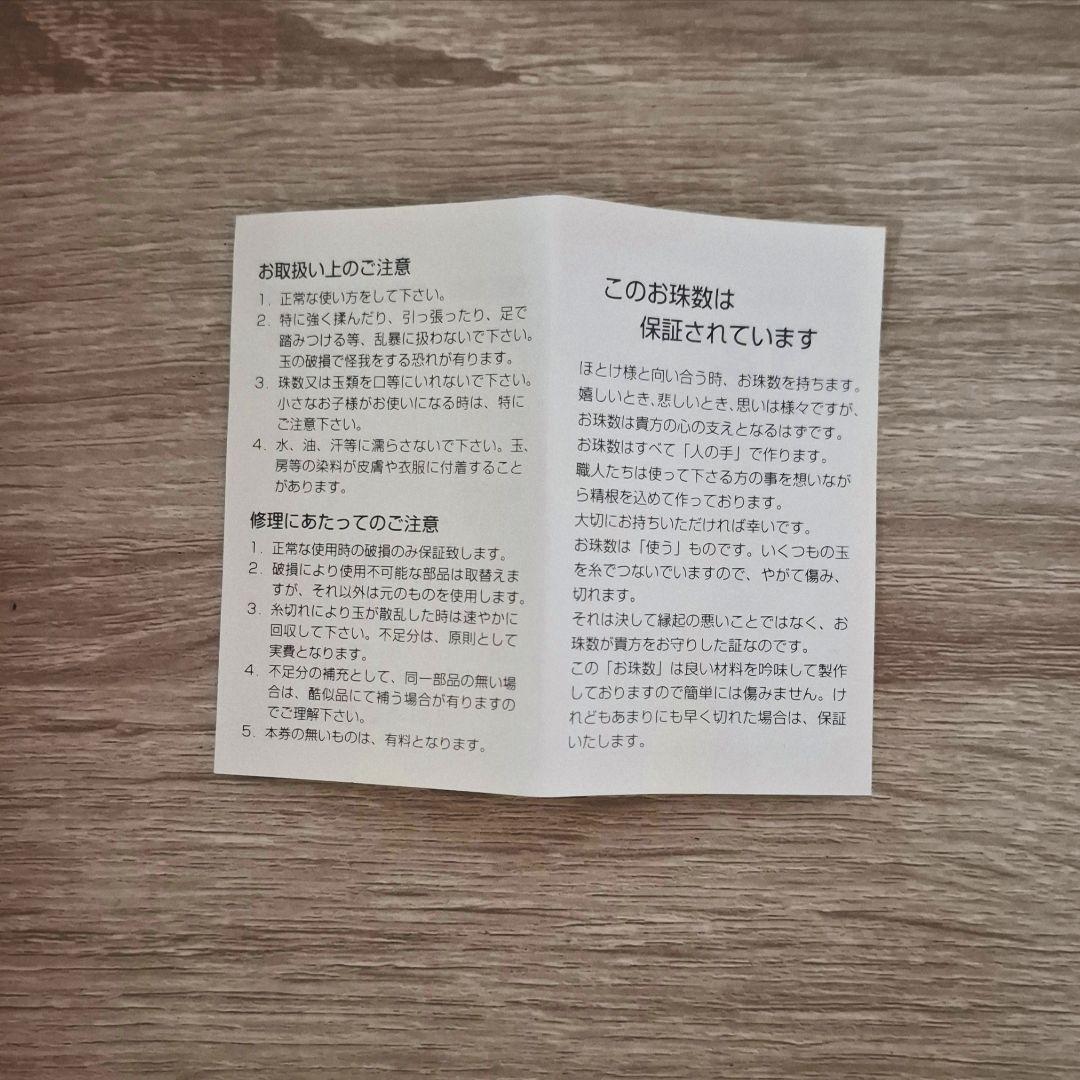 お取扱い上のご注意
1. 正常な使い方をして下さい。
2. 特に強く揉んだり、引っ張ったり、足で
踏みつける等、乱暴に扱わないで下さい。
玉の破損で怪我をする恐れが有ります。
3. 珠数又は玉類を口等にいれないで下さい。
小さなお子様がお使いになる時は、特に
ご注意下さい。
4. 水、油、汗等に濡らさないで下さい。玉、
房等の染料が皮膚や衣服に付着すること
があります。
修理にあたってのご注意
1. 正常な使用時の破損のみ保証致します。
2. 破損により使用不可能な部品は取替えま
すが、それ以外は元のものを使用します。
3. 糸切れにより玉が散乱した時は速やかに
回収して下さい。不足分は、原則として
実費となります。
4. 不足分の補充として、同一部品の無い場
合は、酷似品にて補う場合が有りますの
でご理解下さい。
5. 本券の無いものは、有料となります。
このお珠数は
保証されています
ほとけ様と向い合う時、お珠数を持ちます。
嬉しいとき、悲しいとき、思いは様々ですが、
お珠数は貴方の心の支えとなるはずです。
お珠数はすべて「人の手」で作ります。
職人たちは使って下さる方の事を想いなが
ら精根を込めて作っております。
大切にお持ちいただければ幸いです。
お珠数は「使う」ものです。いくつもの玉
を糸でつないでいますので、やがて傷み、
切れます。
それは決して縁起の悪いことではなく、お
珠数が貴方をお守りした証なのです。
この「お珠数」は良い材料を吟味して製作
しておりますので簡単には傷みません。け
れどもあまりにも早く切れた場合は、保証
いたします。